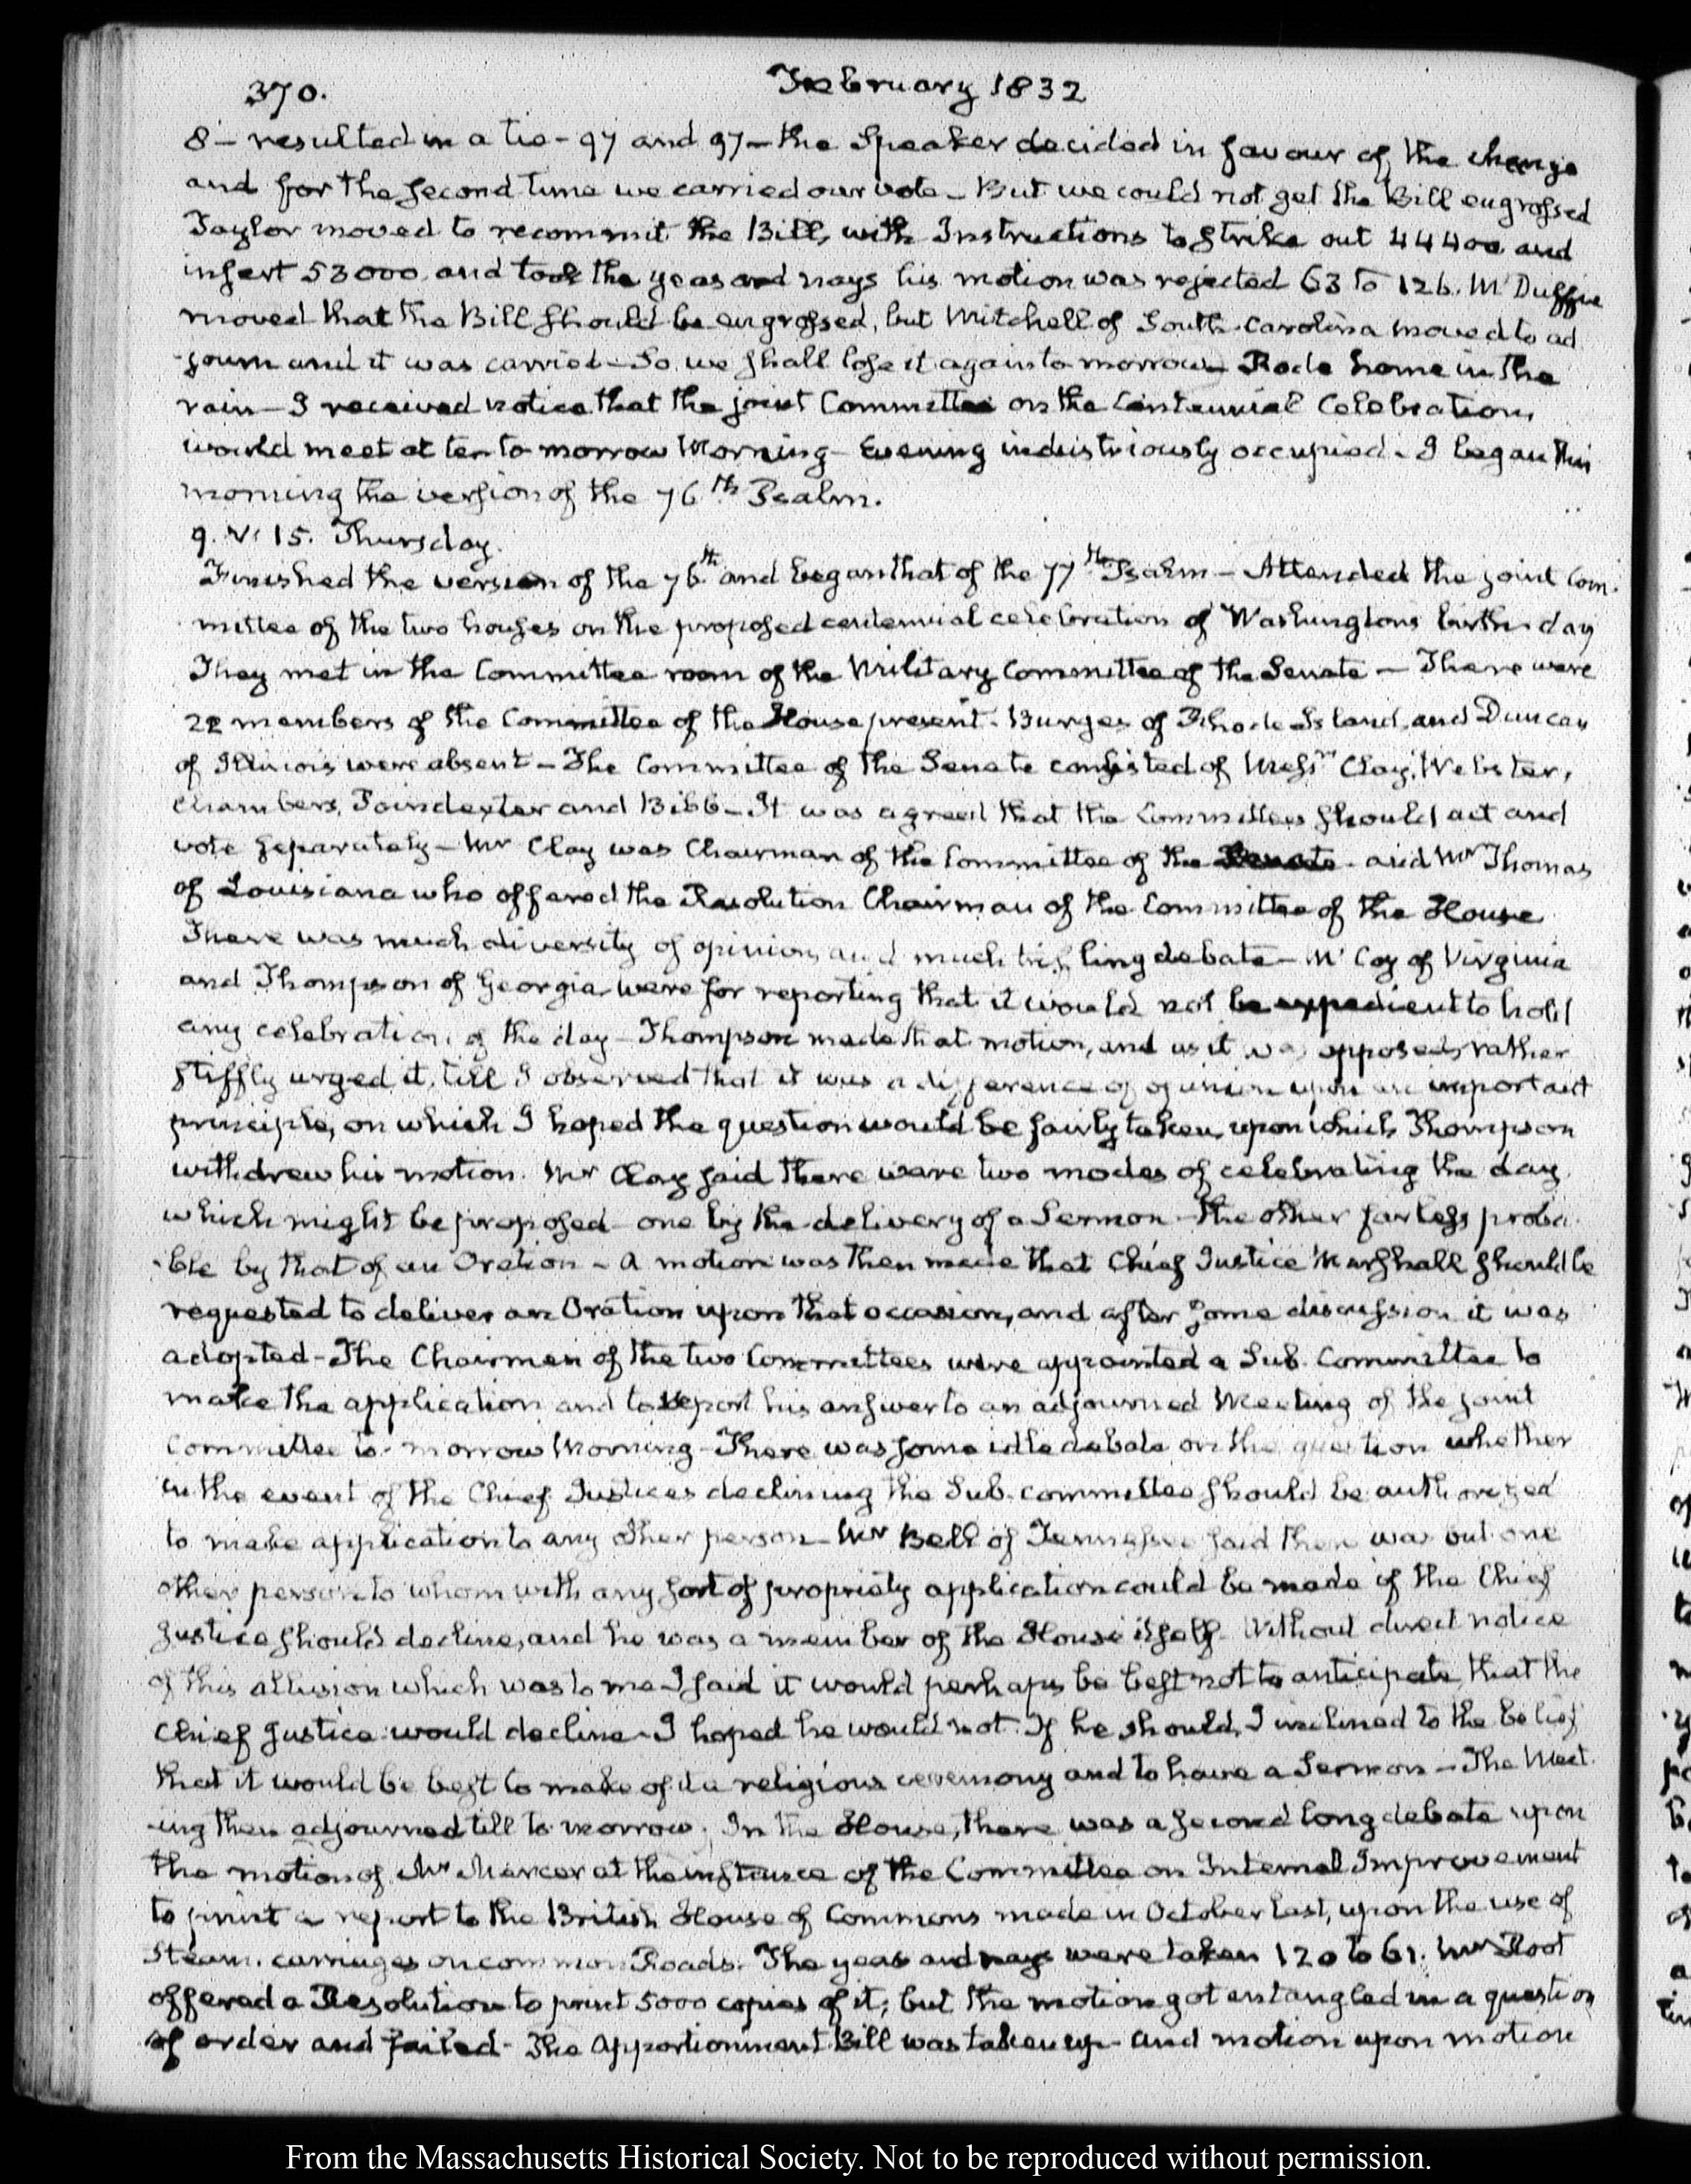 370. February 1832
8 — resulted in a tie - 97 and 97 — the Speaker decided in favour of the change
and for the second time we carried our vote - But we could not get the Bill engrossed
Taylor moved to recommit the Bill, with Instructions to strike out 44400 and
insert 53000 and took the yeas and nays his motion was rejected 63 to 126. McDuffie
moved that the Bill should be engrossed, but Mitchell of South-Carolina moved to ad
-journ and it was carried - So we shall lose it again to morrow - Rode home in the
rain - I received notice that the joint Committee on the Centennial Celebration,
would meet at ten to-morrow Morning - Evening industriously occupied - I began this
morning the version of the 76th Psalm.
9. V: 15. Thursday.
Finished the version of the 76th and began that of the 77th Psalm — Attended the joint Com-
mittee of the two houses on the proposed centennial celebration of Washingtons birth-day
They met in the Committee room of the Military Committee of the Senate — There were
22 members of the Committee of the House present. Burges of Rhode-Island, and Duncan
of Illinois were absent - The Committee of the Senate consisted of Messrs Clay, Webster,
Chambers, Poindexter and Bibb - It was agreed that the Committees should act and
vote separately - Mr Clay was Chairman of the Committee of the Senate - and Mr Thomas
of Louisiana who offered the Resolution Chairman of the Committee of the House
There was much diversity of opinion, and much trifling debate - McCoy of Virginia
and Thompson of Georgia were for reporting that it would not be expedient to hold
any celebration of the day - Thompson made that motion, and as it was opposed, rather
stiffly urged it, till I observed that it was a difference of opinion upon an important
principle, on which I hoped the question would be fairly taken, upon which Thompson
withdrew his motion. Mr Clay said there were two modes of celebrating the day,
which might be proposed - one by the delivery of a Sermon - the other far less proba-
-ble by that of an Oration - A motion was then made that Chief Justice Marshall should be
requested to deliver an Oration upon that occasion, and after some discussion it was
adopted - The Chairmen of the two Committees were appointed a Sub-Committee to
make the application and to report his answer to an adjourned Meeting of the joint
Committee to-morrow Morning - There was some idle debate on the question whether
in the event of the Chief Justices declining the Sub-committee should be authorized
to make application to any other person - Mr Bell of Tennessee said there was but one
other person to whom with any sort of propriety application could be made if the Chief
Justice should decline, and he was a member of the House itself. Without direct notice
of this allusion which was to me I said it would perhaps be best not to anticipate that the
Chief Justice would decline - I hoped he would not. If he should, I inclined to the belief
that it would be best to make of it a religious ceremony and to have a Sermon - The Meet-
-ing then adjourned till to-morrow. In the House, there was a second long debate upon
the motion of Mr Mercer at the instance of the Committee on Internal Improvement
to print a report to the British House of Commons made in October last, upon the use of
Steam-carriages on common Roads. The yeas and nays were taken 120 to 61. Mr Root
offered a Resolution to print 5000 copies of it; but the motion got entangled in a question
of order and failed - The Apportionment Bill was taken up - and motion upon motion
From the Massachusetts Historical Society. Not to be reproduced without permission.